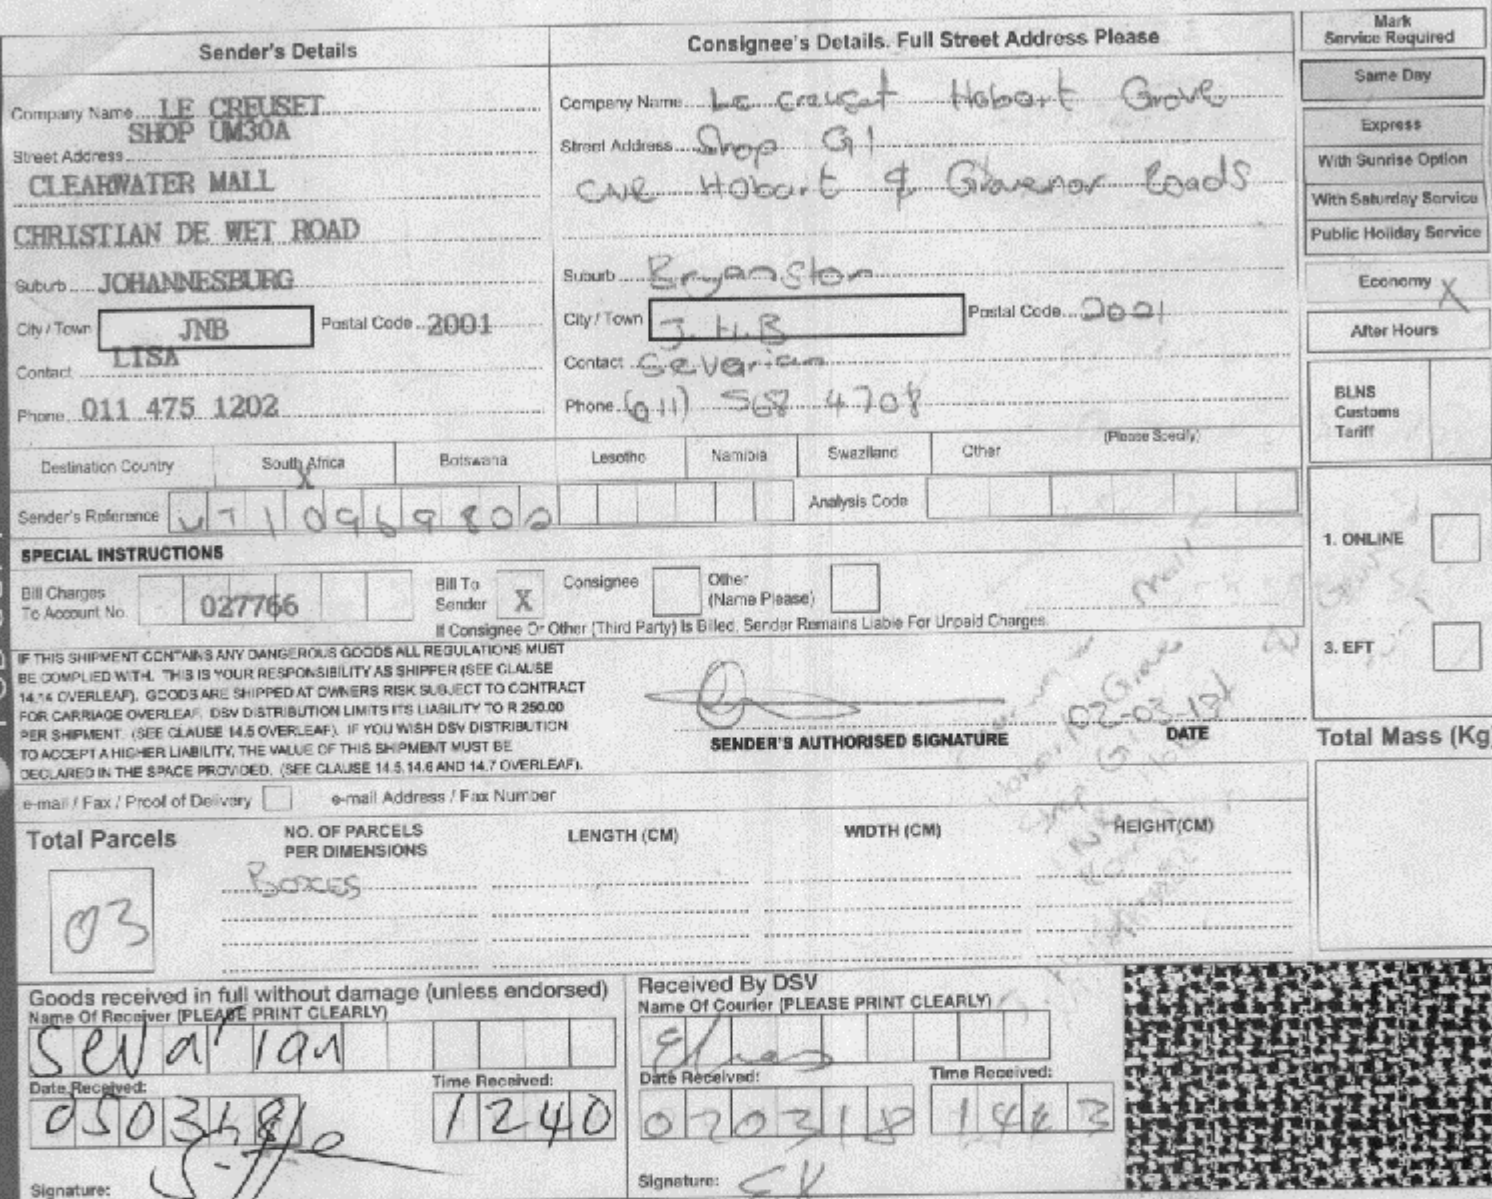 Sender's Details
Consignee's Details. Full Street Address Please
Mark
Service Required
Company Name LE CREUSET
SHOP UM30A
Street Address
CLEARWATER MALL
CHRISTIAN DE WET ROAD
Suburb JOHANNESBURG
City / Town JNB Postal Code 2001
Contact LISA
Phone 011 475 1202
Company Name Le Creuset Hobart Grove
Street Address Shop G1
CNR Hobart & Grovenor Roads
Suburb Bryanston
City / Town J.H.B Postal Code 2021
Contact Severian
Phone (011) 568 4708
Same Day
Express
With Sunrise Option
With Saturday Service
Public Holiday Service
Economy X
After Hours
BLNS
Customs
Tariff
Destination Country South Africa X Botswana Lesotho Namibia Swaziland Other (Please Specify)
Sender's Reference Analysis Code
SPECIAL INSTRUCTIONS
Bill Charges
To Account No. 027766
Bill To
Sender X Consignee Other
(Name Please)
If Consignee Or Other (Third Party) Is Billed, Sender Remains Liable For Unpaid Charges.
1. ONLINE
3. EFT
IF THIS SHIPMENT CONTAINS ANY DANGEROUS GOODS ALL REGULATIONS MUST
BE COMPLIED WITH. THIS IS YOUR RESPONSIBILITY AS SHIPPER (SEE CLAUSE
14.14 OVERLEAF). GOODS ARE SHIPPED AT OWNERS RISK SUBJECT TO CONTRACT
FOR CARRIAGE OVERLEAF. DSV DISTRIBUTION LIMITS ITS LIABILITY TO R 250.00
PER SHIPMENT. (SEE CLAUSE 14.5 OVERLEAF). IF YOU WISH DSV DISTRIBUTION
TO ACCEPT A HIGHER LIABILITY, THE VALUE OF THIS SHIPMENT MUST BE
DECLARED IN THE SPACE PROVIDED. (SEE CLAUSE 14.5, 14.6 AND 14.7 OVERLEAF).
SENDER'S AUTHORISED SIGNATURE
02-03-18
DATE
Total Mass (Kg)
e-mail / Fax / Proof of Delivery e-mail Address / Fax Number
Total Parcels
03
NO. OF PARCELS
PER DIMENSIONS
LENGTH (CM) WIDTH (CM) HEIGHT(CM)
BOXES
Goods received in full without damage (unless endorsed)
Name Of Receiver (PLEASE PRINT CLEARLY)
Sevarian
Date Received: Time Received:
050318 1240
Signature:
Received By DSV
Name Of Courier (PLEASE PRINT CLEARLY)
Date Received: Time Received:
020318 1443
Signature: